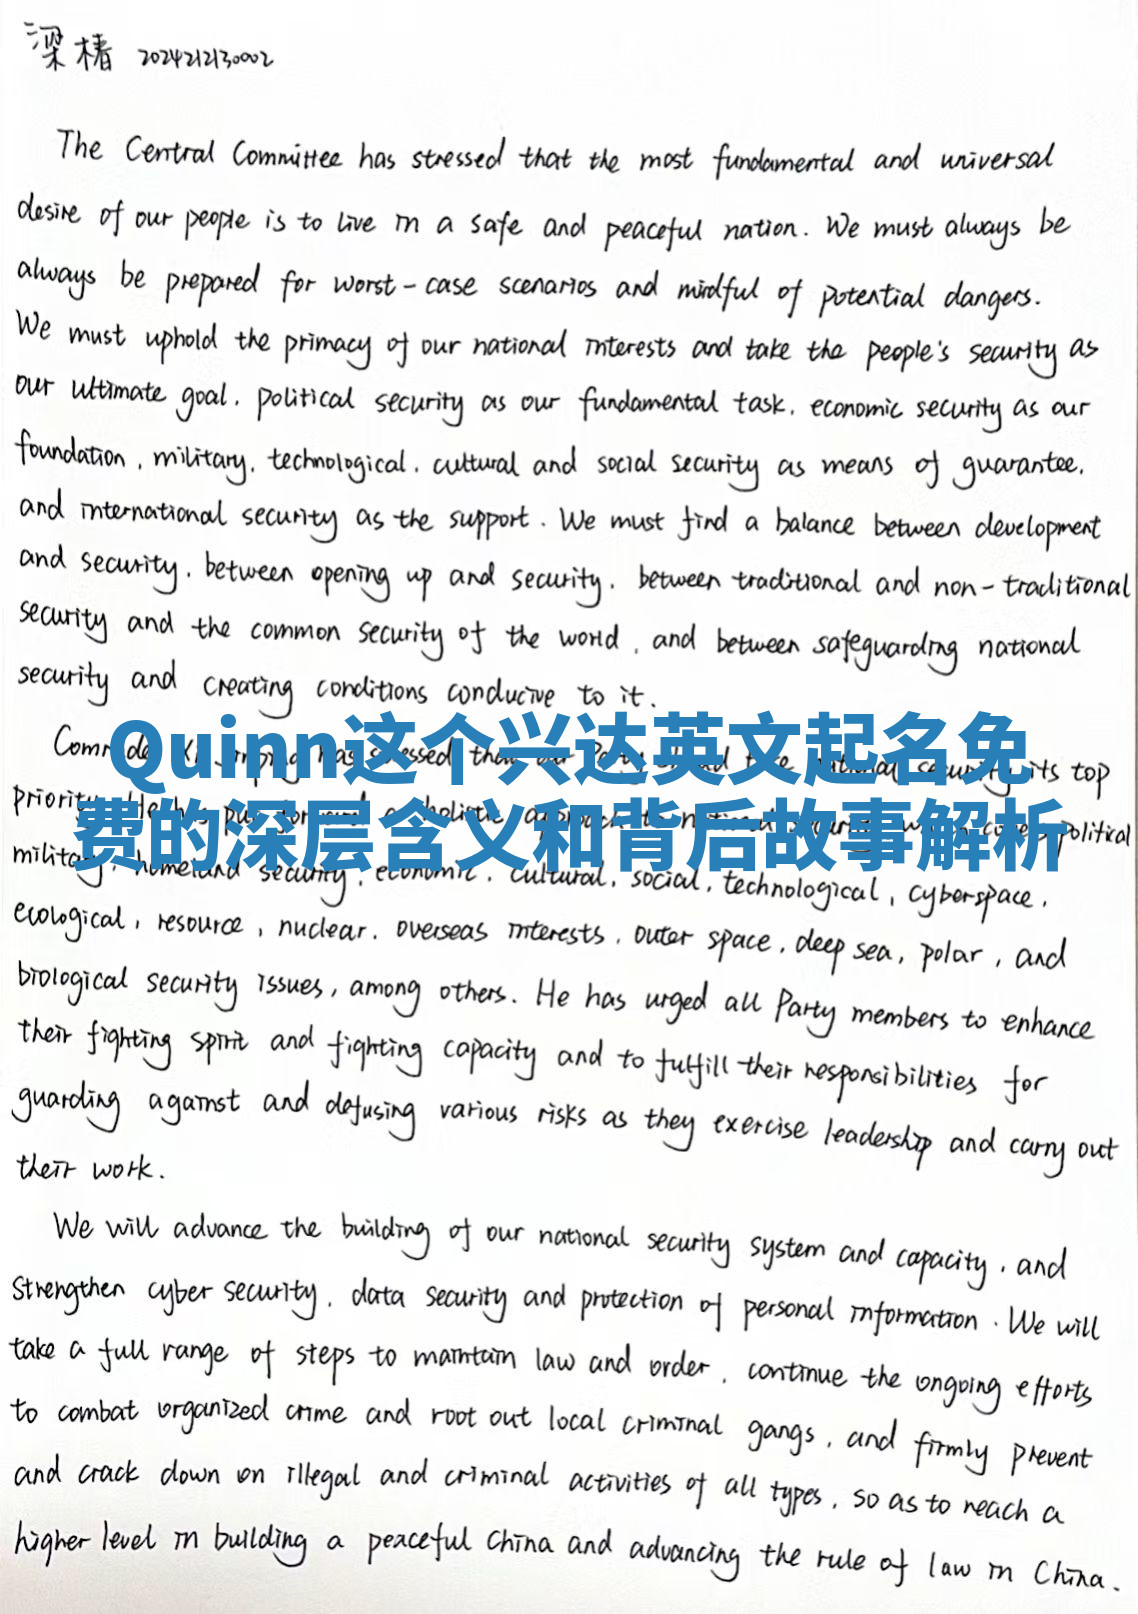 梁椿 2024212130002
The Central Committee has stressed that the most fundamental and universal
desire of our people is to live in a safe and peaceful nation. We must always be
always be prepared for worst-case scenarios and mindful of potential dangers.
We must uphold the primacy of our national interests and take the people's security as
our ultimate goal, political security as our fundamental task, economic security as our
foundation, military, technological, cultural and social security as means of guarantee,
and international security as the support. We must find a balance between development
and security, between opening up and security, between traditional and non-traditional
security and the common security of the world, and between safeguarding national
security and creating conditions conducive to it.
Quinn这个兴达英文起名免
费的深层含义和背后故事解析
its top
priority political
military, homeland security, economic, cultural, social, technological, cyberspace,
ecological, resource, nuclear, overseas interests, outer space, deep sea, polar, and
biological security issues, among others. He has urged all Party members to enhance
their fighting spirit and fighting capacity and to fulfill their responsibilities for
guarding against and defusing various risks as they exercise leadership and carry out
their work.
We will advance the building of our national security system and capacity, and
strengthen cyber security, data security and protection of personal information. We will
take a full range of steps to maintain law and order, continue the ongoing efforts
to combat organized crime and root out local criminal gangs, and firmly prevent
and crack down on illegal and criminal activities of all types, so as to reach a
higher level in building a peaceful China and advancing the rule of law in China.